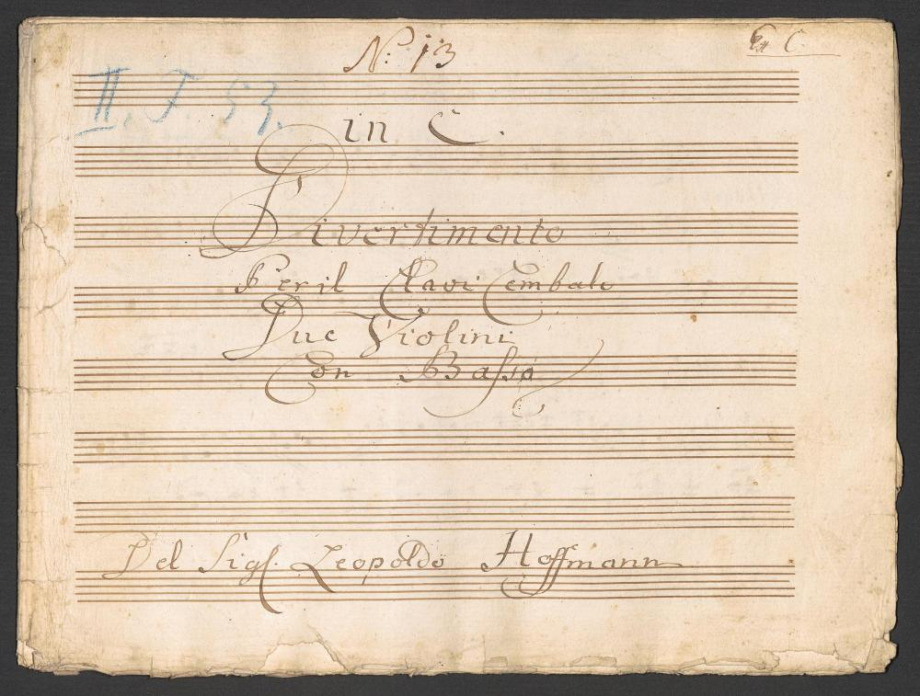 No: 13
Ex C.
II. J. 53.
in C.
Divertimento
Per il Clavi Cembalo
Due Violini
Con Basso
Del Sigl. Leopoldo Hoffmann